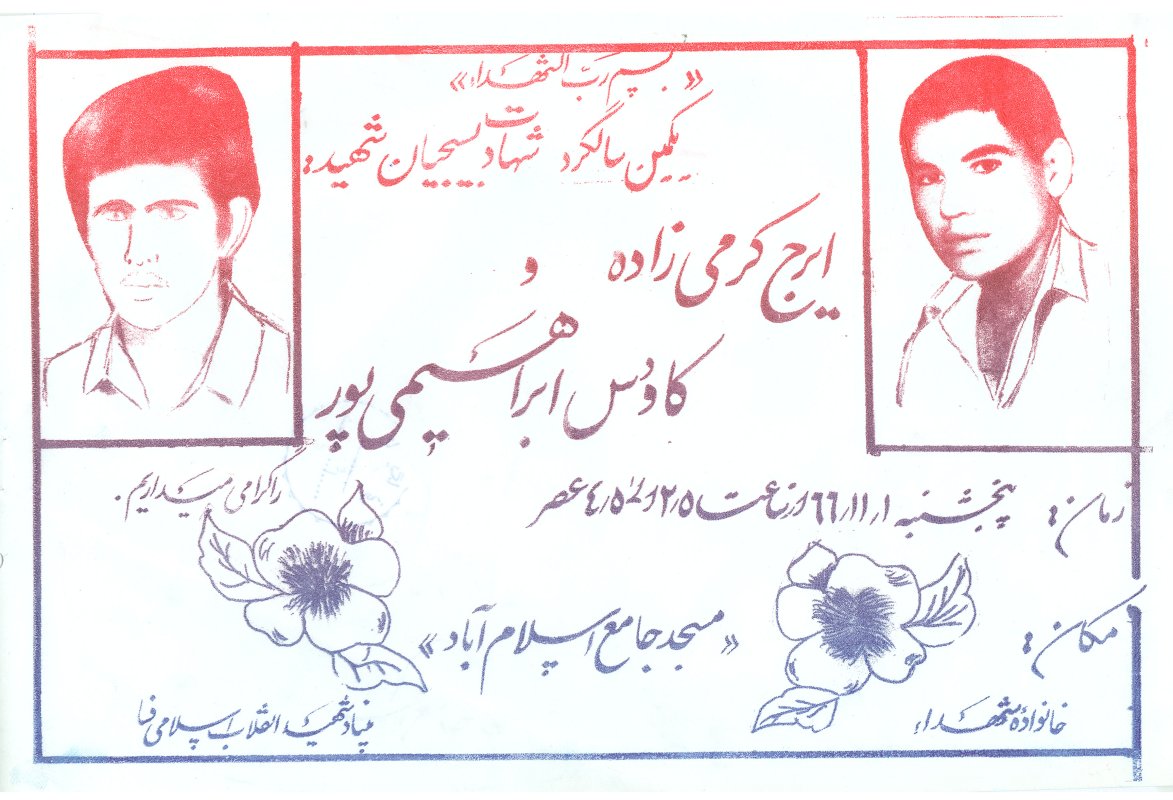 «بسم رب الشهداء»
یکمین سالگرد شهادت بسیجیان شهید:
ایرج کرمی زاده و
کاوس ابراهیمی پور
را گرامی میداریم.
زمان: پنجشنبه ۶۶٫۱۱٫۱ از ساعت ۲٫۵ الی ۴٫۵ عصر
مکان: «مسجد جامع اسلام آباد»
خانواده شهداء
بنیاد شهید انقلاب اسلامی فسا